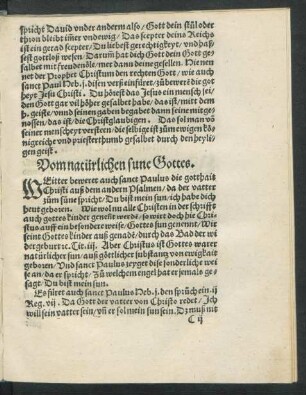 spricht Dauid vnder anderm also/ Gott dein stůl oder
thron bleibt imer vnd ewig/ Das scepter deins Reichs
ist ein gerad scepter/ Du liebest gerechtigkeyt/ vnd haß-
sest gottloß wesen/ Darumb hat dich Gott dein Gott ge
salbet mit freudenöle/ mer dann deine gesellen. Hie nen
net der Prophet Christum den rechten Gott/ wie auch
sanct Paul Heb. j. disen verß einfüret/ zů beweren die got
heyt Jesu Christi. Du hörest das Jesus ein mensch sei/
den Gott gar vil höher gesalbet habe/ das ist/ mit dem
h. geiste/ vnd seinen gaben begabet dann seine mitge
nossen/ das ist/ die Christglaubigen. Das sol man võ
seiner menscheyt versteen/ die selbige ist zům ewigen kö
nigreich vnd priesterthumb gesalbet durch den heyli-
gen geist.
Vom natürlichen sune Gottes.
WEitter beweret auch sanct Paulus die gotthait
Christi auß dem andern Psalmen/ da der vatter
zům süne spricht/ Du bist mein sun/ ich habe dich
heut geboren. Wie wol nu alle Christen in der schrifft
auch gottes kinder genēnt werdē/ so wirt doch hie Chri
stus auff ein besondere weise/ Gottes sun genennt/ Wir
seint Gottes kinder auß genade/ durch das Bad der wi
dergeburt ꝛc. Tit. iij. Aber Christus ist Gottes warer
natürlicher sun/ auß götlicher substantz von ewigkait
geboren/ Vnd sanct Paulus zeyget dise sonderliche wei
se an/ da er spricht/ Zů welchem engel hat er jemals ge-
sagt/ Du bist mein sun.
Es füret auch sanct Paulus Heb. j. den sprüch ein ij
Reg. vij. Da Gott der vatter von Christo redet/ Jch
will sein vatter sein/ vñ er sol mein sun sein. Dz muß mã
C ij